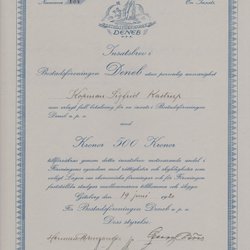 Nummer
En Insats
DENEB
Insatsbrev i
Bostadsföreningen Deneb utan personlig ansvarighet
Köpman Sigfrid Kastrup
som erlagt full betalning för en insats i Bostadsföreningen
Deneb u. p. a.
med
Kronor 500 Kronor
tillförsäkras genom detta insatsbrev motsvarande andel i
Föreningen jämte med rättigheter och skyldigheter som
enligt Lagen om ekonomiska föreningar och för Föreningen
fastställda stadgar medlemmarna tillkomma och åligga
Göteborg den 19 juni 19
För Bostadsföreningen Deneb u. p. a.
Dess styrelse: